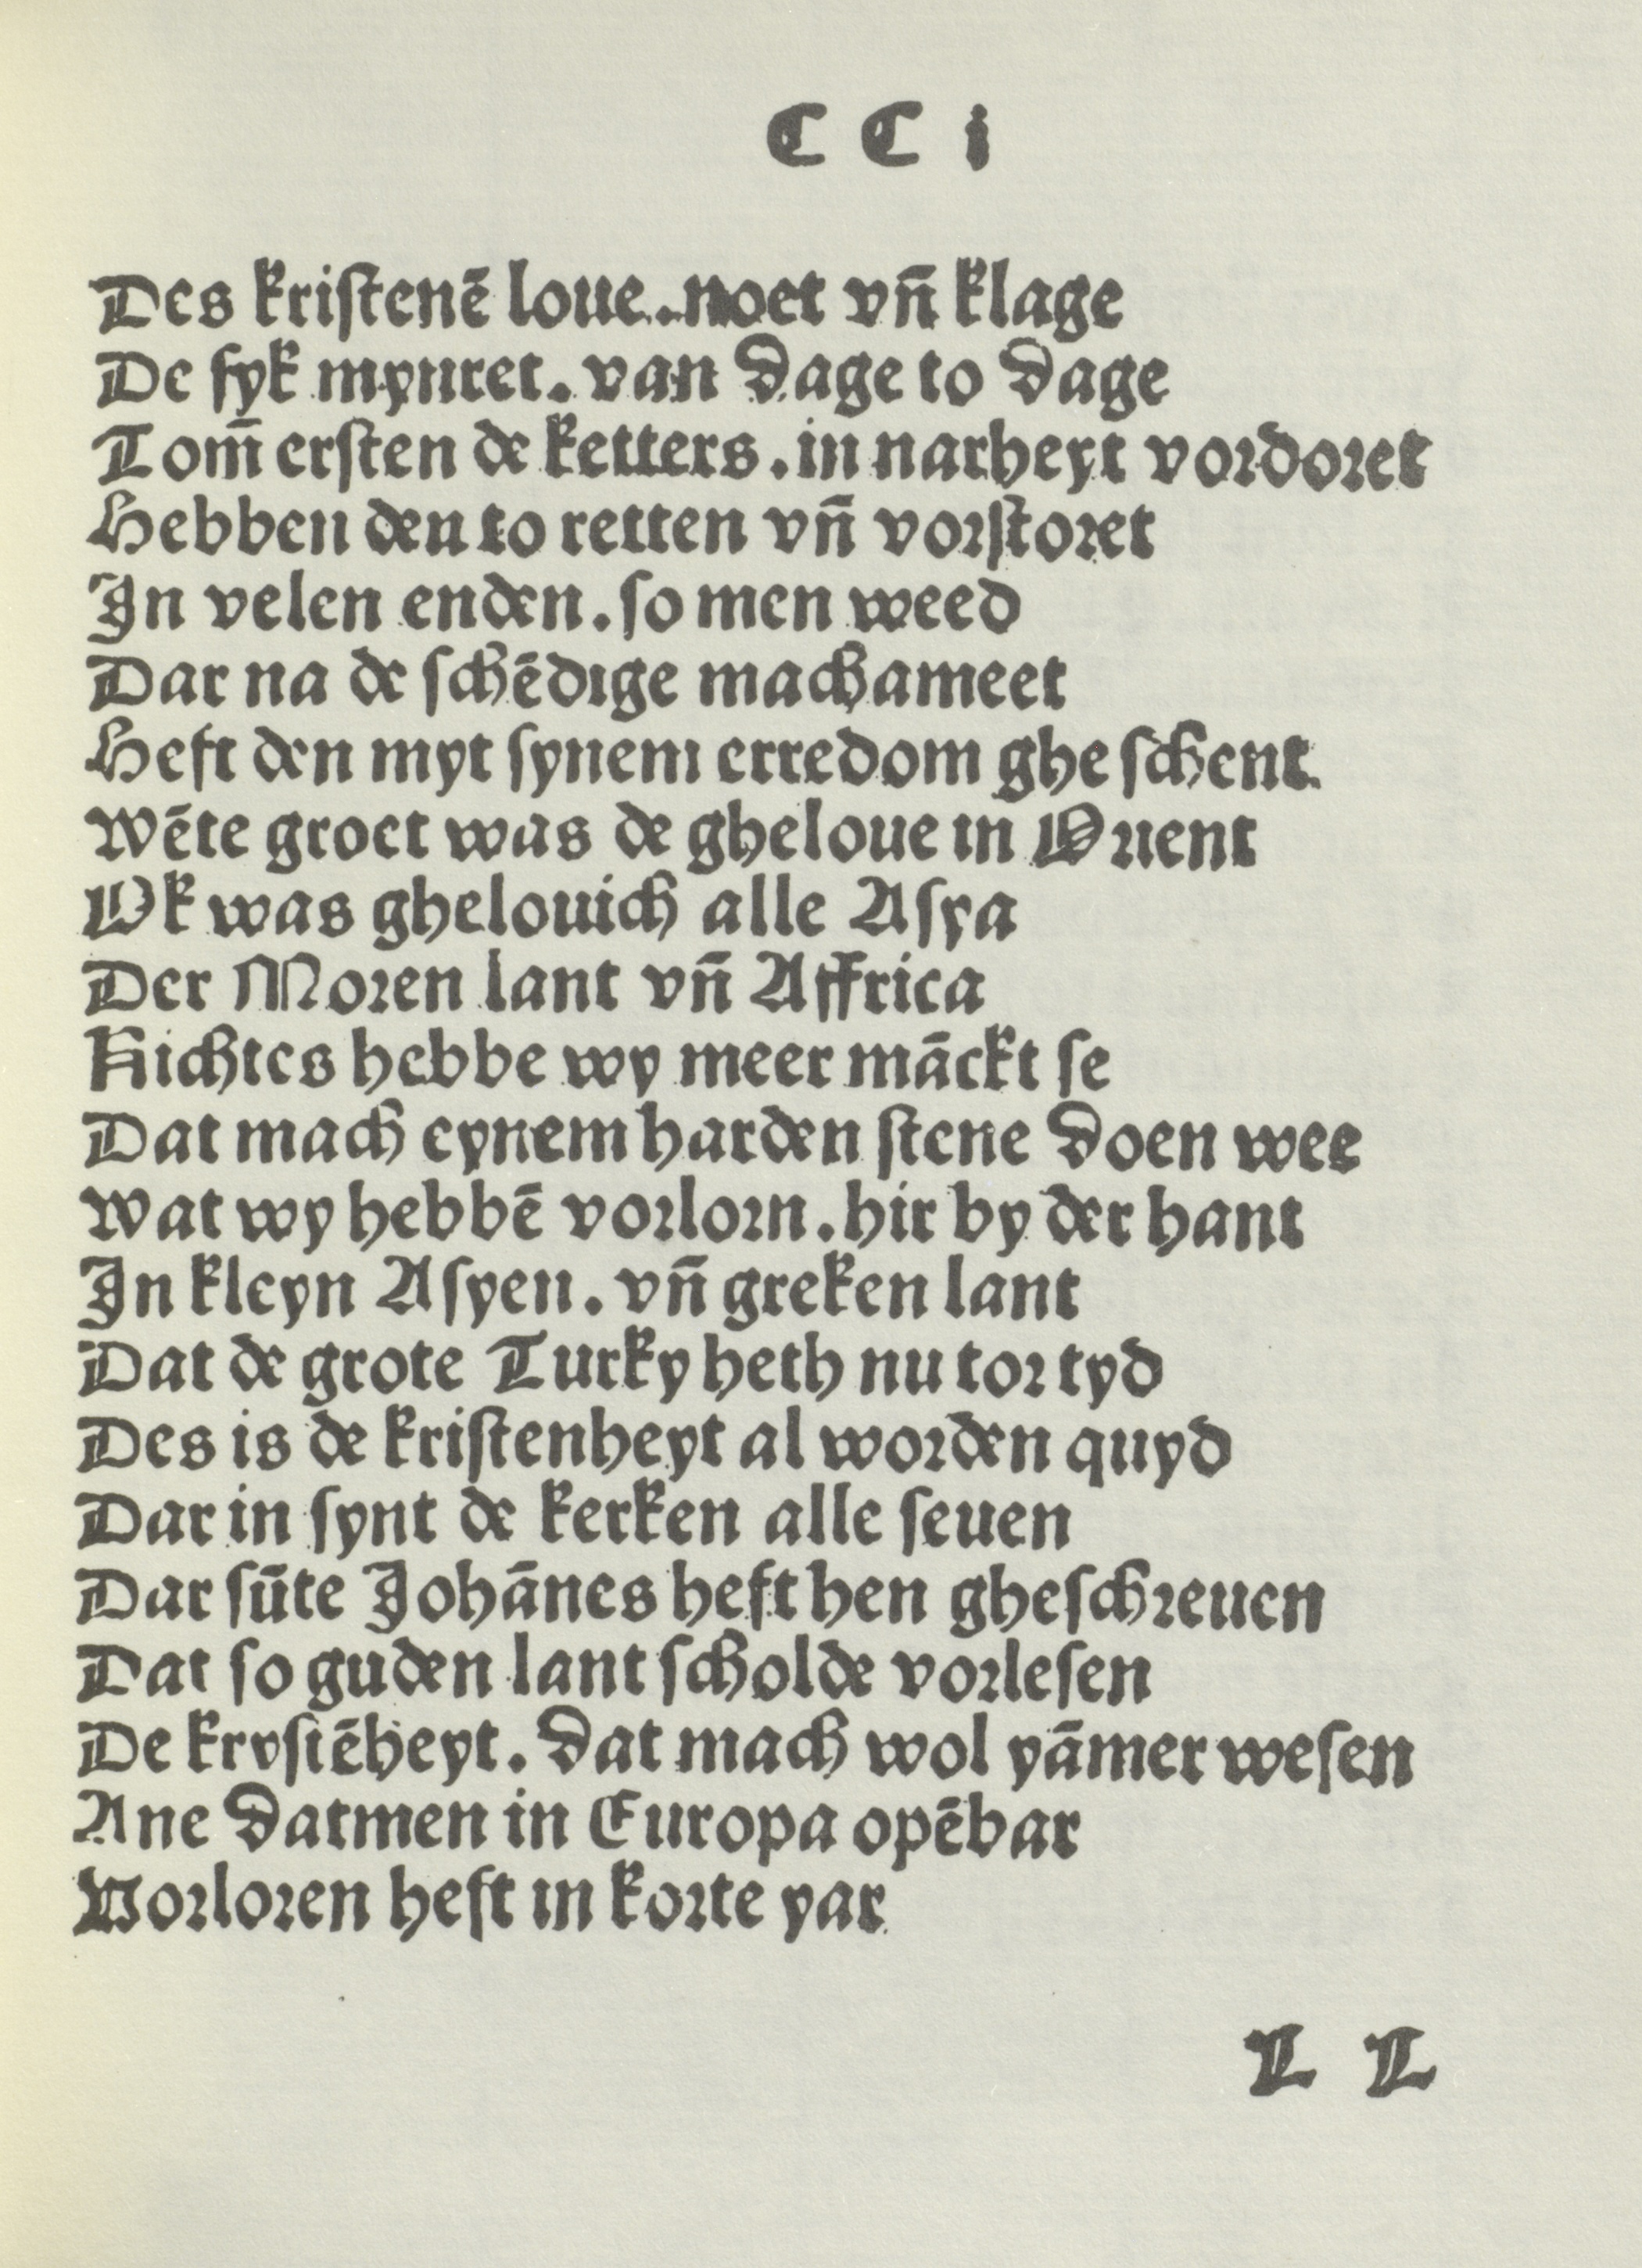 C C i
Des kriſtenē loue. noet vn̄ klage
De ſyk mynret. van dage to dage
Tom̄ erſten de ketters. in narheyt vordoret
Hebben den to retten vn̄ vorſtoret
In velen enden. ſo men weed
Dar na de ſchēdige machameet
Heft den myt ſynem erredom ghe ſchent
Wēte groet was de gheloue in Orient
Ok was ghelouich alle Aſya
Der Moren lant vn̄ Affrica
Nichtes hebbe wy meer māckt ſe
Dat mach eynem harden ſtene doen wee
Wat wy hebbē vorlorn. hir by der hant
In kleyn Aſyen. vn̄ greken lant
Dat de grote Turky heth nu tor tyd
Des is de kriſtenheyt al worden quyd
Dar in ſynt de kerken alle ſeuen
Dar ſūte Johānes heft hen gheſchreuen
Dat ſo guden lant ſcholde vorleſen
De kryſtēheyt. dat mach wol yāmer weſen
Ane datmen in Europa opēbar
Vorloren heft in korte yar
L L